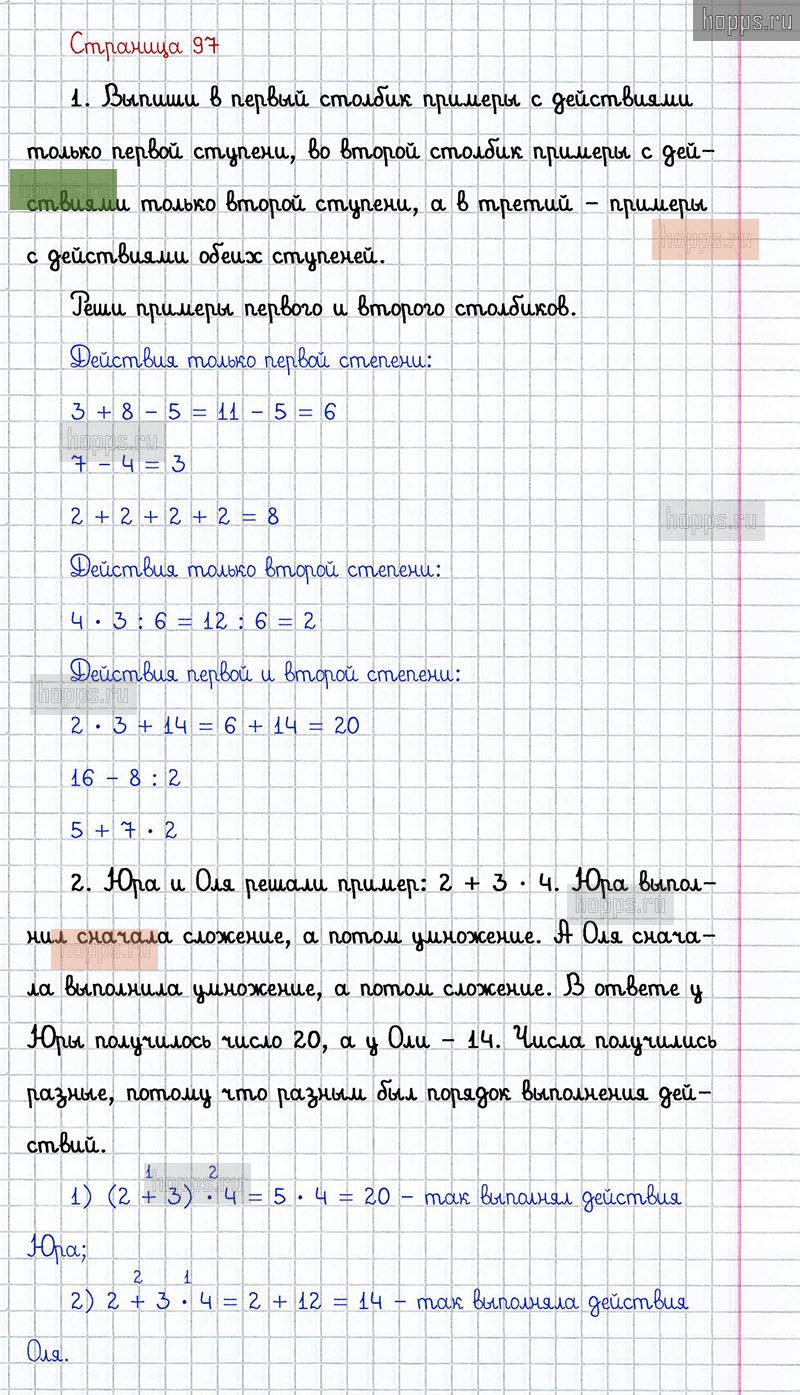 hopps.ru
Страница 97
1. Выпиши в первый столбик примеры с действиями
только первой ступени, во второй столбик примеры с дей-
hopps.ru
ствиями только второй ступени, а в третий - примеры
hopps.ru
с действиями обеих ступеней.
Реши примеры первого и второго столбиков.
Действия только первой степени:
3 + 8 - 5 = 11 - 5 = 6
hopps.ru
7 - 4 = 3
2 + 2 + 2 + 2 = 8
hopps.ru
Действия только второй степени:
4 · 3 : 6 = 12 : 6 = 2
Действия первой и второй степени:
hopps.ru
2 · 3 + 14 = 6 + 14 = 20
16 - 8 : 2
5 + 7 · 2
2. Юра и Оля решали пример: 2 + 3 · 4. Юра выпол-
hopps.ru
нил сначала сложение, а потом умножение. А Оля снача-
hopps.ru
ла выполнила умножение, а потом сложение. В ответе у
Юры получилось число 20, а у Оли - 14. Числа получились
разные, потому что разным был порядок выполнения дей-
ствий.
1 2
hopps.ru
1) (2 + 3) · 4 = 5 · 4 = 20 - так выполнял действия
Юра;
2 1
2) 2 + 3 · 4 = 2 + 12 = 14 - так выполняла действия
Оля.